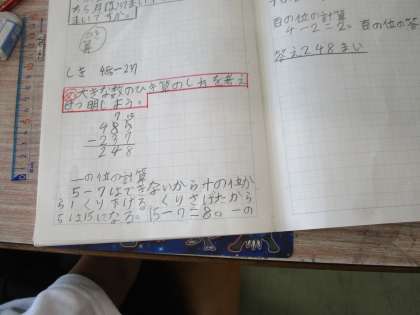 まいですか。
ひき
算
しき 485-237
め大きな数のひき算のしかたを考え
せつ明しよう。
7 15
485
-237
248
一の位の計算
5-7はできないから十の位か
ら1くり下げる。くりさげたから
5は15になる。15-7=8。一の
百の位の計算
4-2=2。百の位の答
答え248まい